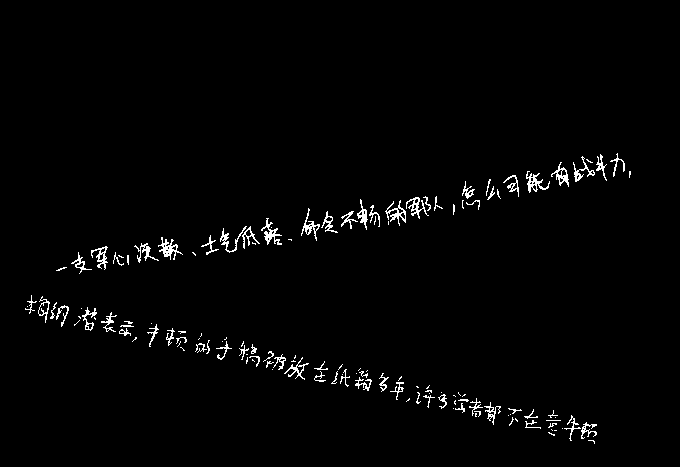 一支军心涣散、士气低落、命令不畅的军队,怎么可能有战斗力,
梅纳潜表示,牛顿的手稿被放在纸箱多年,许多学者都不在意牛顿